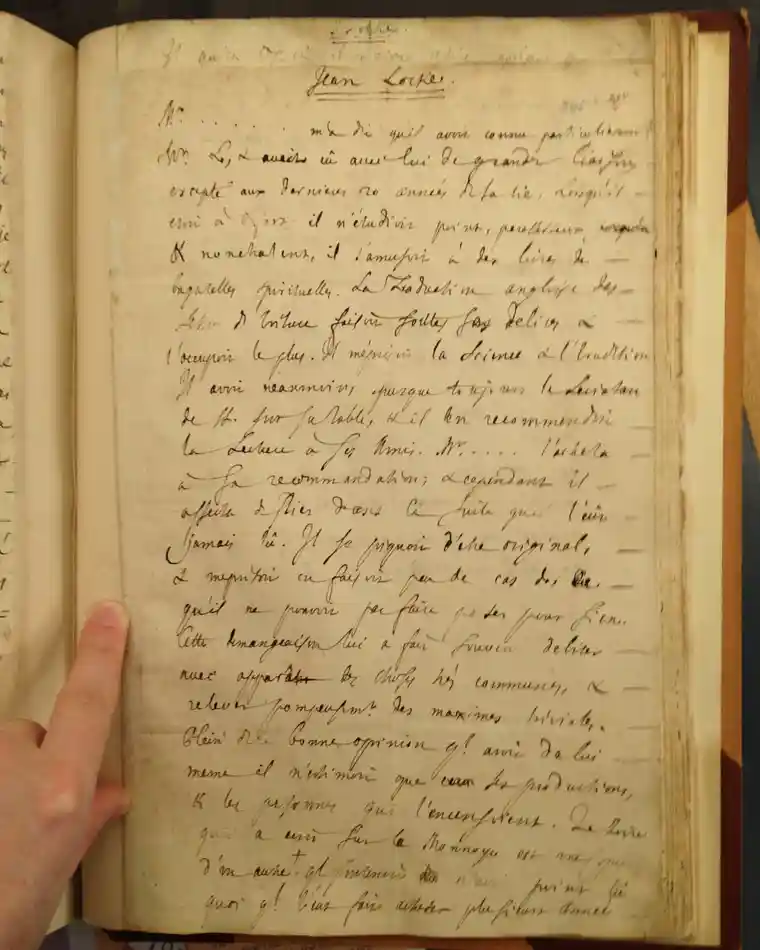 Jean Locke.
Mr. . . . . . m'a dit qu'il avoit connu particulierement
Mr. L, & avoit eû avec lui de grandes liaisons
excepté aux dernieres 20 années de sa vie. Lorsqu'il
étoit à il n'étudioit point, paresseux,
& nonchalent, il s'amusoit à des livres de
bagatelles spirituelles. La Traduction angloise des
de Voiture faisoit toutes ses delices &
l'occupoit le plus. Il méprisoit la Science & l'Erudition
Il avoit néanmoins presque toujours le Leviatan
de H. sur sa table, & il en recommendoit
la Lecture à ses Amis. Mr. . . . . l'acheta
à sa recommandation; & cependant il
affecta de dans la suite qu'il l'eût
jamais lû. Il se piquoit d'etre original,
& meprisoit ou faisoit peu de cas de ce
qu'il ne pouvoit pas faire passer pour sien.
Cette demangeaison lui a fait souvent debiter
avec des choses trés communes, &
relever pompeusemt. des maximes triviales.
Plein de la bonne opinion ql. avoit de lui
meme il n'estimoit que ses productions,
& les personnes qui l'encensoient. Le Livre
qu'il a ecrit sur la Monnoye est
d'un autre ql. point lû
quoi ql. l'eut fait acheter plusieurs années